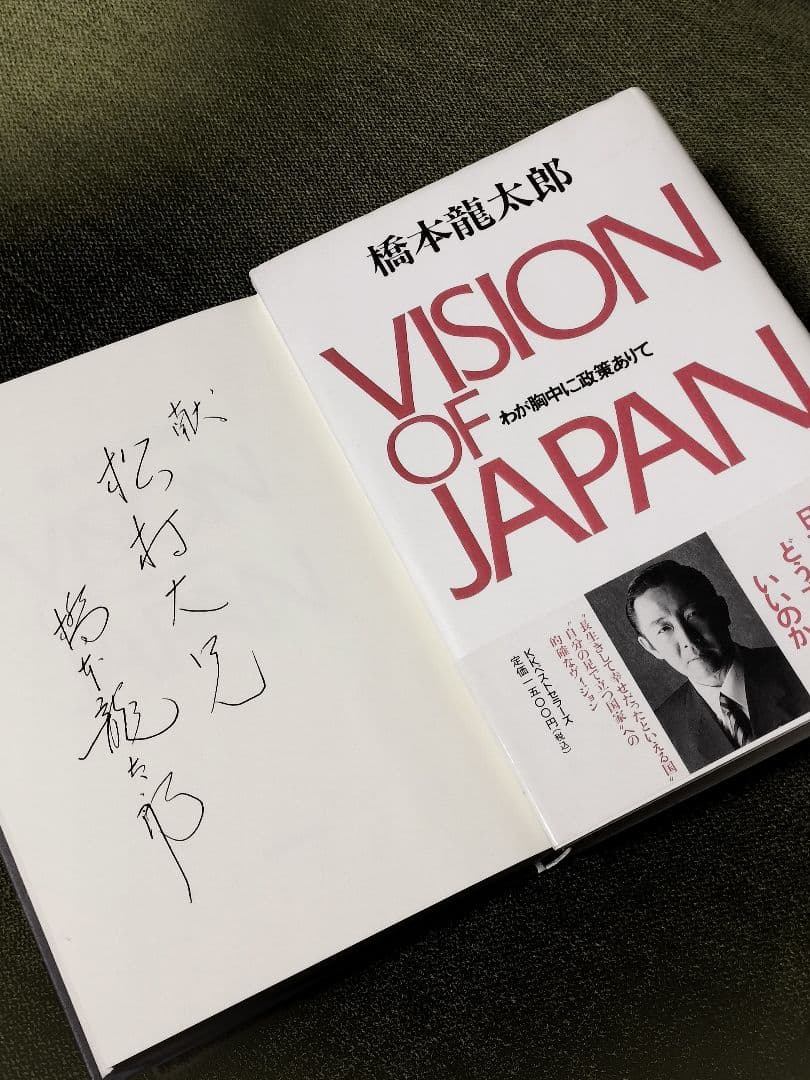 献
松村大兄
橋本龍太郎
橋本龍太郎
VISION
OF
わが胸中に政策ありて
JAPAN
どう
いいのか
"長生きして幸せだったといえる国"
"自分の足で立つ国家"への
的確なヴィジョン
KKベストセラーズ
定価一五〇〇円(税込)